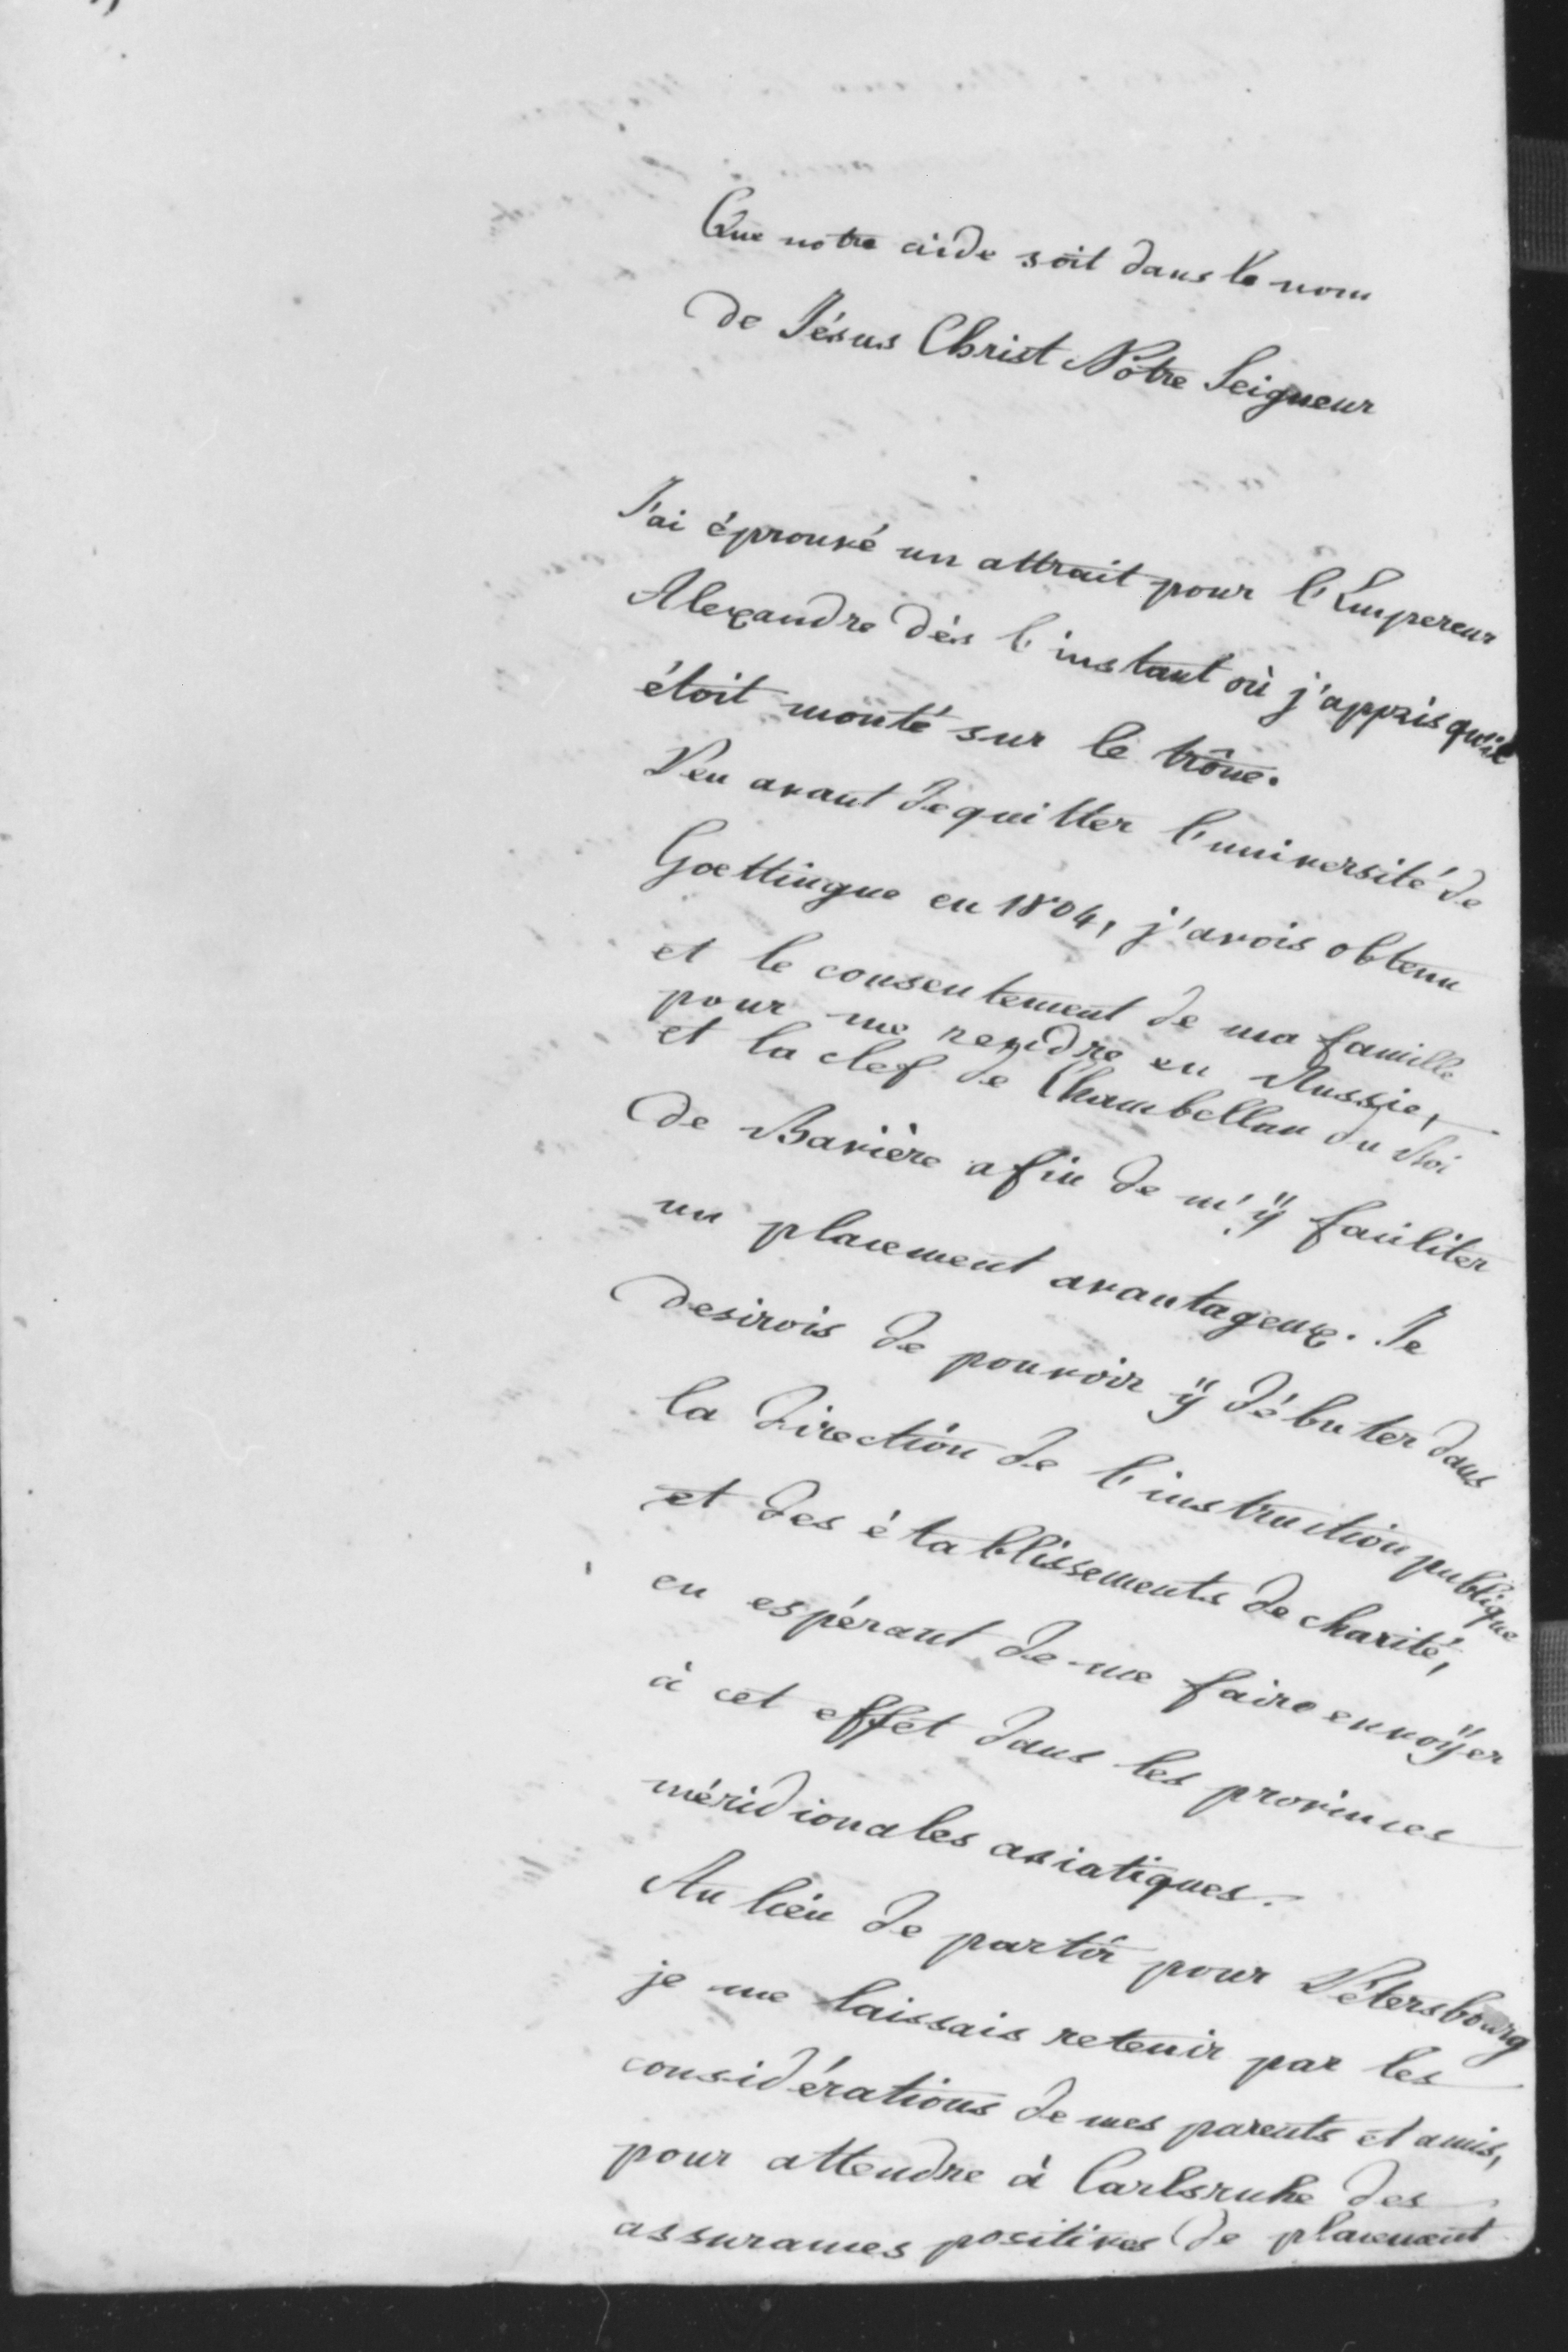 Que notre aide soit dans le nom
de Jésus Christ Nôtre Seigneur
J'ai éprouvé un attrait pour l'Empereur
Alexandre dès l'instant où j'appris qu'il
étoit monté sur le trône.
Peu avant de quitter l'université de
Goettingue en 1804, j'avois obtenu
et le consentement de ma famille
pour me rendre en Russie,
et la clef de Chambellan du Roi
de Bavière afin de m'ÿ faciliter
un placement avantageux. Je
desirois de pouvoir ÿ débuter dans
la Direction de l'instruction publique
et des établissements de charité,
en espérant de me faire envoÿer
à cet effet dans les provinces
méridionales asiatiques.
Au lieu de partir pour Pétersbourg
je me laissais retenir par les
considérations de mes parents et amis,
pour attendre à Carlsruhe des
assurances positives de placement